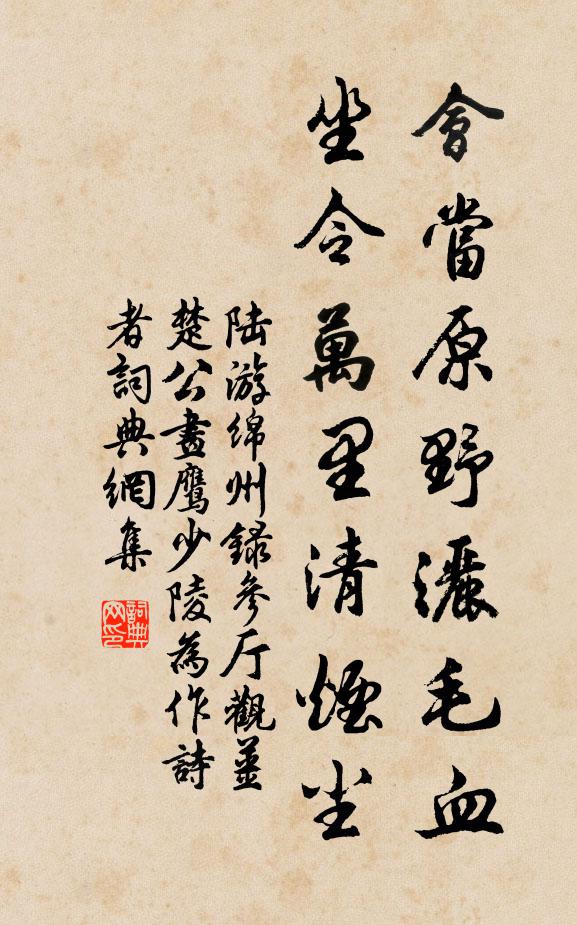 會當原野灑毛血
坐令萬里清煙尘
陆游绵州録參厅觀薑
楚公畫鹰少陵為作詩
者詞典網集
詞典网印